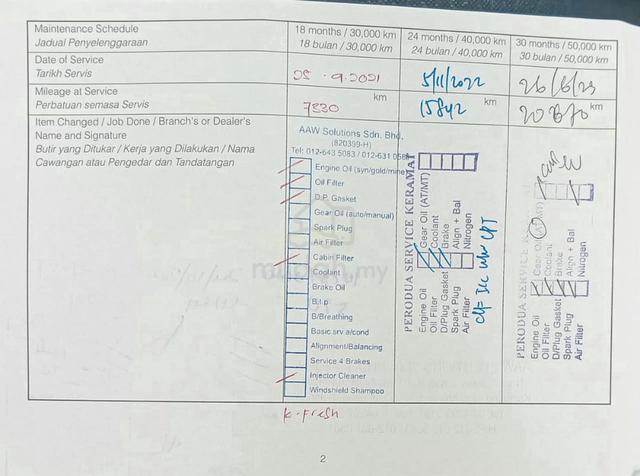 Maintenance Schedule
Jadual Penyelenggaraan
18 months / 30,000 km
18 bulan / 30,000 km
24 months / 40,000 km
24 bulan / 40,000 km
30 months / 50,000 km
30 bulan / 50,000 km
Date of Service
Tarikh Servis
5/11/2022
Mileage at Service
Perbatuan semasa Servis
7330 km
15842 km
km
Item Changed / Job Done / Branch's or Dealer's
Name and Signature
Butir yang Ditukar / Kerja yang Dilakukan / Nama
Cawangan atau Pengedar dan Tandatangan
AAW Solutions Sdn. Bhd.
(820399-H)
Tel: 012-643 5083 / 012-631
Engine Oil (syn/gold/mine)
Oil Filter
D.P. Gasket
Gear Oil (auto/manual)
Spark Plug
Air Filter
Cabin Filter
Coolant
Brake Oil
B/Breathing
Basic srv a/cond
Alignment/Balancing
Service 4 Brakes
Injector Cleaner
Windshield Shampoo
K-Fresh
PERODUA SERVICE KERAMAT
Engine Oil
Oil Filter
D/Plug Gasket
Spark Plug
Air Filter
Gear Oil (AT/MT)
Coolant
Brake
Align + Bal
Nitrogen
PERODUA SERVICE
Engine Oil
Oil Filter
D/Plug Gasket
Spark Plug
Air Filter
Gear Oil
Coolant
Brake
Align + Bal
Nitrogen
2